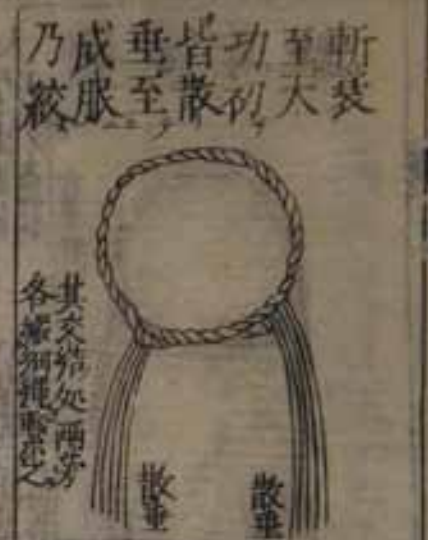 斬衰
至大
功初
皆散
垂至
成服
乃絞
其交結処兩旁
各綴細繩繫之
散垂
散垂